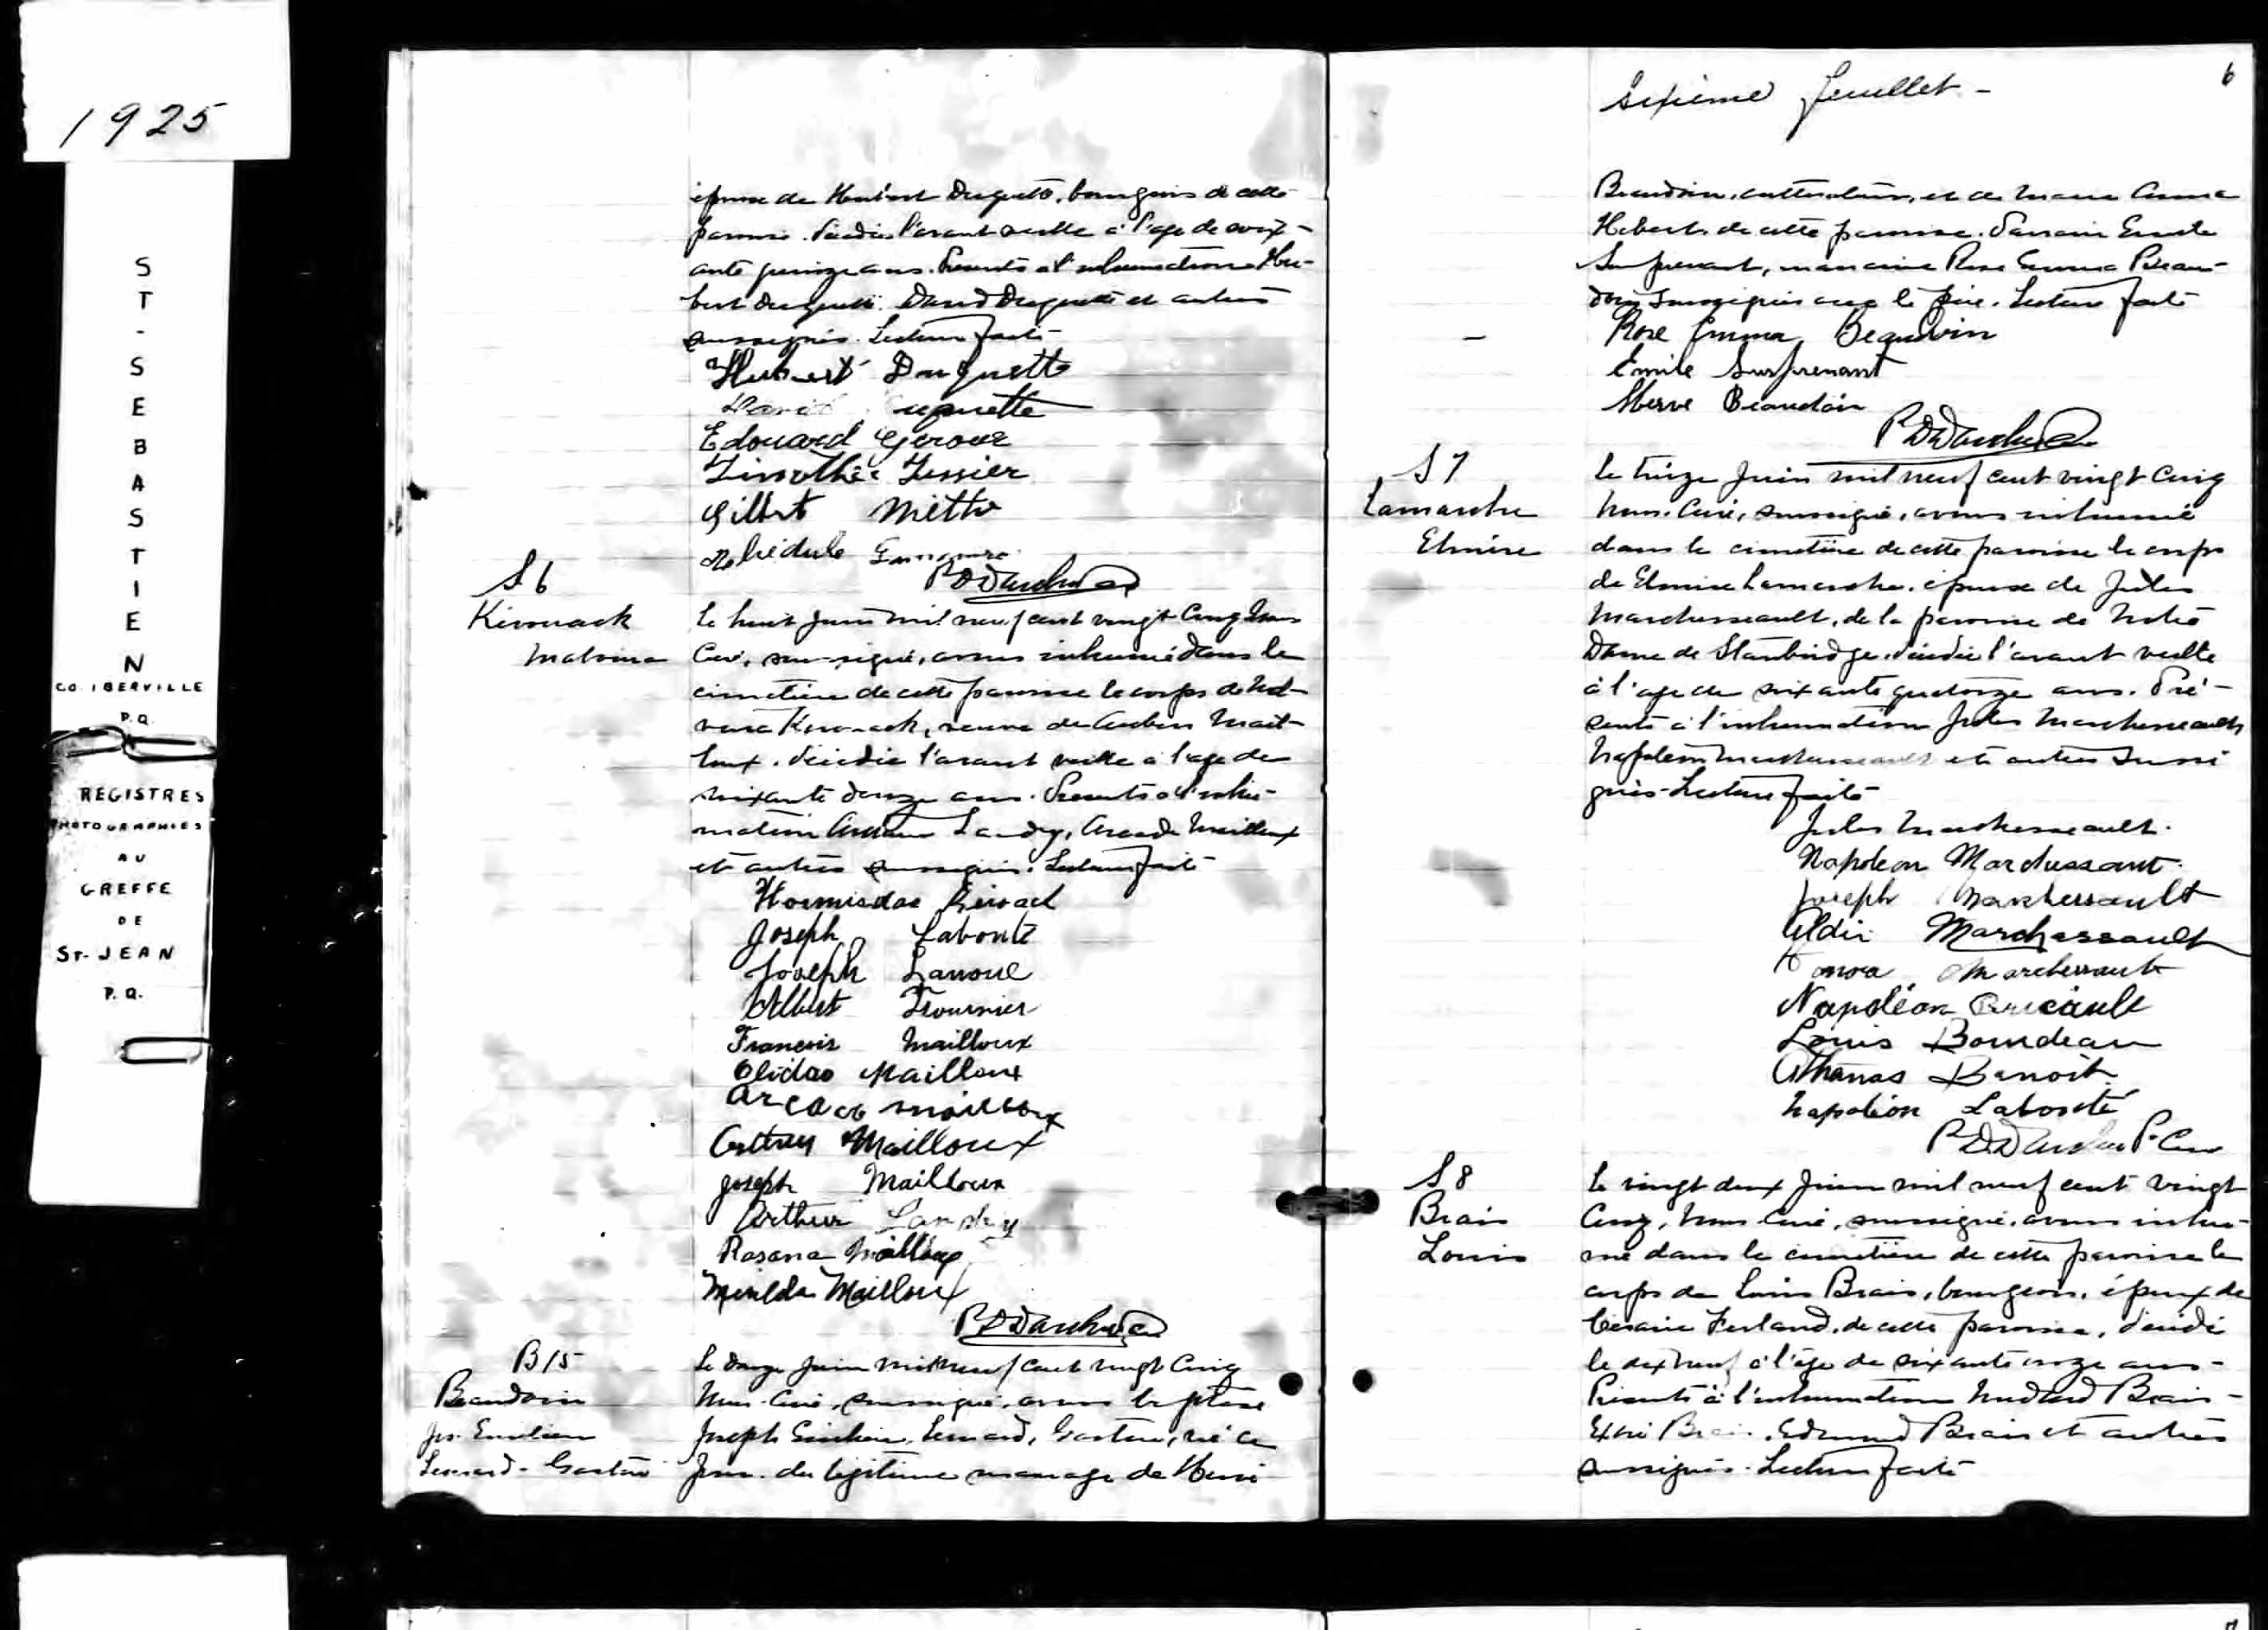 1925
ST-SEBASTIEN
CO. IBERVILLE
P.Q.
REGISTRES
PHOTOGRAPHIES
AU
GREFFE
DE
ST-JEAN
P.Q.
épouse de Hubert Duquette, bourgeois de cette
paroisse. décédée l'avant veille à l'age de soix-
ante quinze ans. Présents à l'inhumation Hu-
bert Duquette. David Duquette et autres
soussignés. Lecture faite
Hubert Duquette
David uquette
Edouard Giroux
Timothée Tessier
Gilbert
S 6
Kirouack
Malvina
le huit Juin mil neuf cent vingt Cinq Nous
Curé, sous-signé, avons inhumé dans le
cimetière de cette paroisse le corps de Mal-
vina Kirouack, veuve de Aubin Mail-
loux. décédée l'avant veille à l'age de
soixante douze ans. Présents à l'inhu-
mation Arthur Landry, Arcade Mailloux
et autres soussignés. Lecture faite
Hormisdas
Joseph Labonté
Joseph Lanoue
Albert Fournier
Francois Mailloux
Mailloux
Mailloux
Joseph Mailloux
Arthur Landry
Rosana Mailloux
Mailloux
B 15
Beaudoin
Jos. Emilien
Leonard - Gaston
Le douze Juin mil neuf cent vingt Cinq
Nous Curé, soussigné, avons baptisé
Joseph Emilien, Leonard, Gaston, né ce
jour. du légitime mariage de
6
Sixième feuillet -
Beaudoin, cultivateur, et de Marie Anna
Hebert. de cette paroisse. Parrain Emile
Surprenant, marraine Rose Emma Beau-
doin soussignés avec le père. Lecture faite
Rose Emma Beaudoin
Emile Surprenant
Beaudoin
S 7
Lamarche
Elmire
le treize Juin mil neuf cent vingt Cinq
Nous, Curé, soussigné, avons inhumé
dans le cimetière de cette paroisse le corps
de Elmire Lamarche. épouse de Jules
Marchesseault, de la paroisse de Notre
Dame de Stanbridge. décédée l'avant veille
à l'age de soixante quatorze ans. Pré-
sents à l'inhumation Jules Marchesseault
Napoleon Marchesseault et autres soussi
gnés. Lecture faite
Jules Marchesseault.
Napoleon Marchessaut.
Joseph Marchessault
Marchesseault
Marchessault
Napoléon Bricault
Louis Bourdeau
Athanas Benoit
Napoléon Labonté
S 8
Brais
Louis
le vingt deux Juin mil neuf cent vingt
Cinq, Nous Curé, soussigné, avons inhu-
mé dans le cimetière de cette paroisse le
corps de Louis Brais, bourgeois, époux de
Césarie Ferland, de cette paroisse, décédé
le dix neuf à l'âge de soixante onze ans -
Présents à l'inhumation Brais -
Brais. Edmond Brais et autres
soussignés. Lecture faite